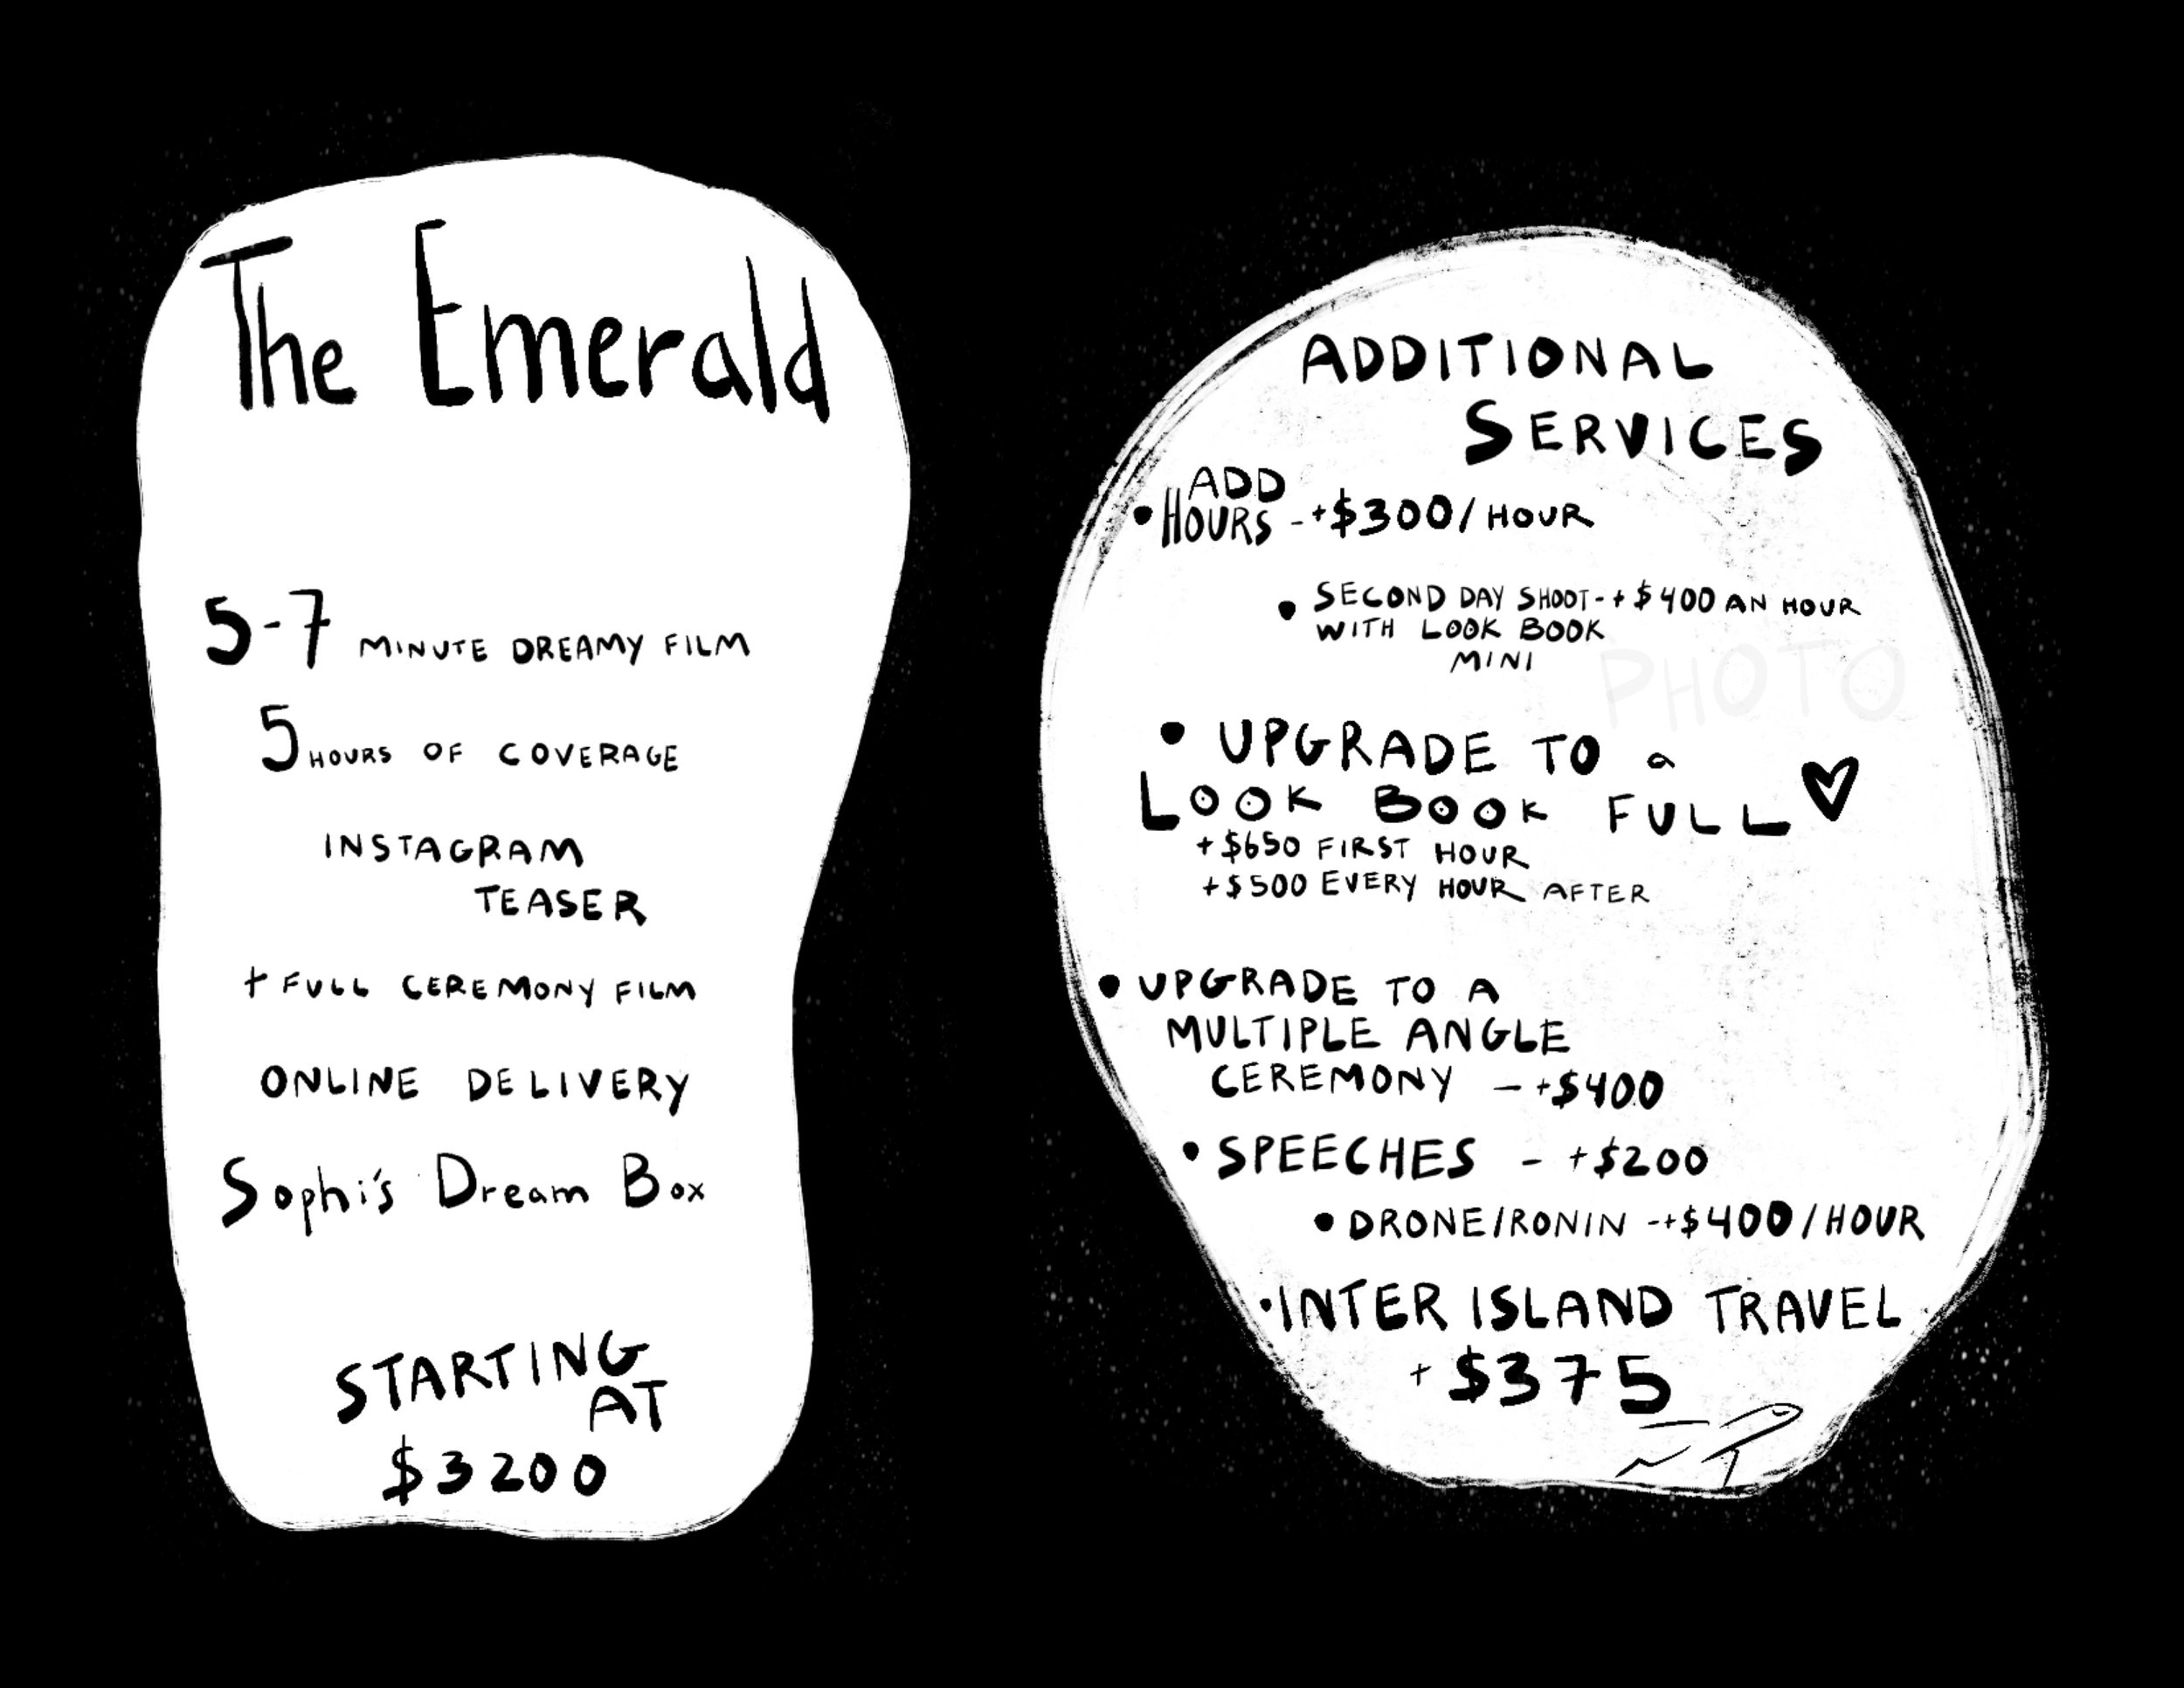 The Emerald
5-7 MINUTE DREAMY FILM
5 HOURS OF COVERAGE
INSTAGRAM
TEASER
+ FULL CEREMONY FILM
ONLINE DELIVERY
Sophi's Dream Box
STARTING
AT
$3200
ADDITIONAL
SERVICES
ADD
• HOURS -+$300/HOUR
• SECOND DAY SHOOT-+$400 AN HOUR
WITH LOOK BOOK
MINI
PHOTO
• UPGRADE TO a
LOOK BOOK FULL
+$650 FIRST HOUR
+$500 EVERY HOUR AFTER
• UPGRADE TO A
MULTIPLE ANGLE
CEREMONY -+$400
• SPEECHES - +$200
• DRONE/RONIN -+$400/HOUR
• INTER ISLAND TRAVEL
+ $375